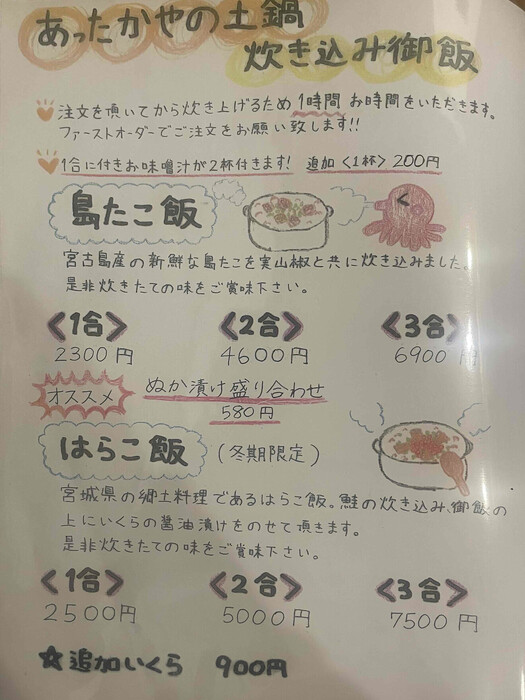 あったかやの土鍋
炊き込み御飯
注文を頂いてから炊き上げるため1時間お時間をいただきます。
ファーストオーダーでご注文をお願い致します!!
1合に付きお味噌汁が2杯付きます! 追加<1杯>200円
島たこ飯
宮古島産の新鮮な島たこを実山椒と共に炊き込みました。
是非炊きたての味をご賞味下さい。
<1合> <2合> <3合>
2300円 4600円 6900円
オススメ ぬか漬け盛り合わせ
580円
はらこ飯 (冬期限定)
宮城県の郷土料理であるはらこ飯。鮭の炊き込み御飯の
上にいくらの醤油漬けをのせて頂きます。
是非炊きたての味をご賞味下さい。
<1合> <2合> <3合>
2500円 5000円 7500円
☆追加いくら 900円